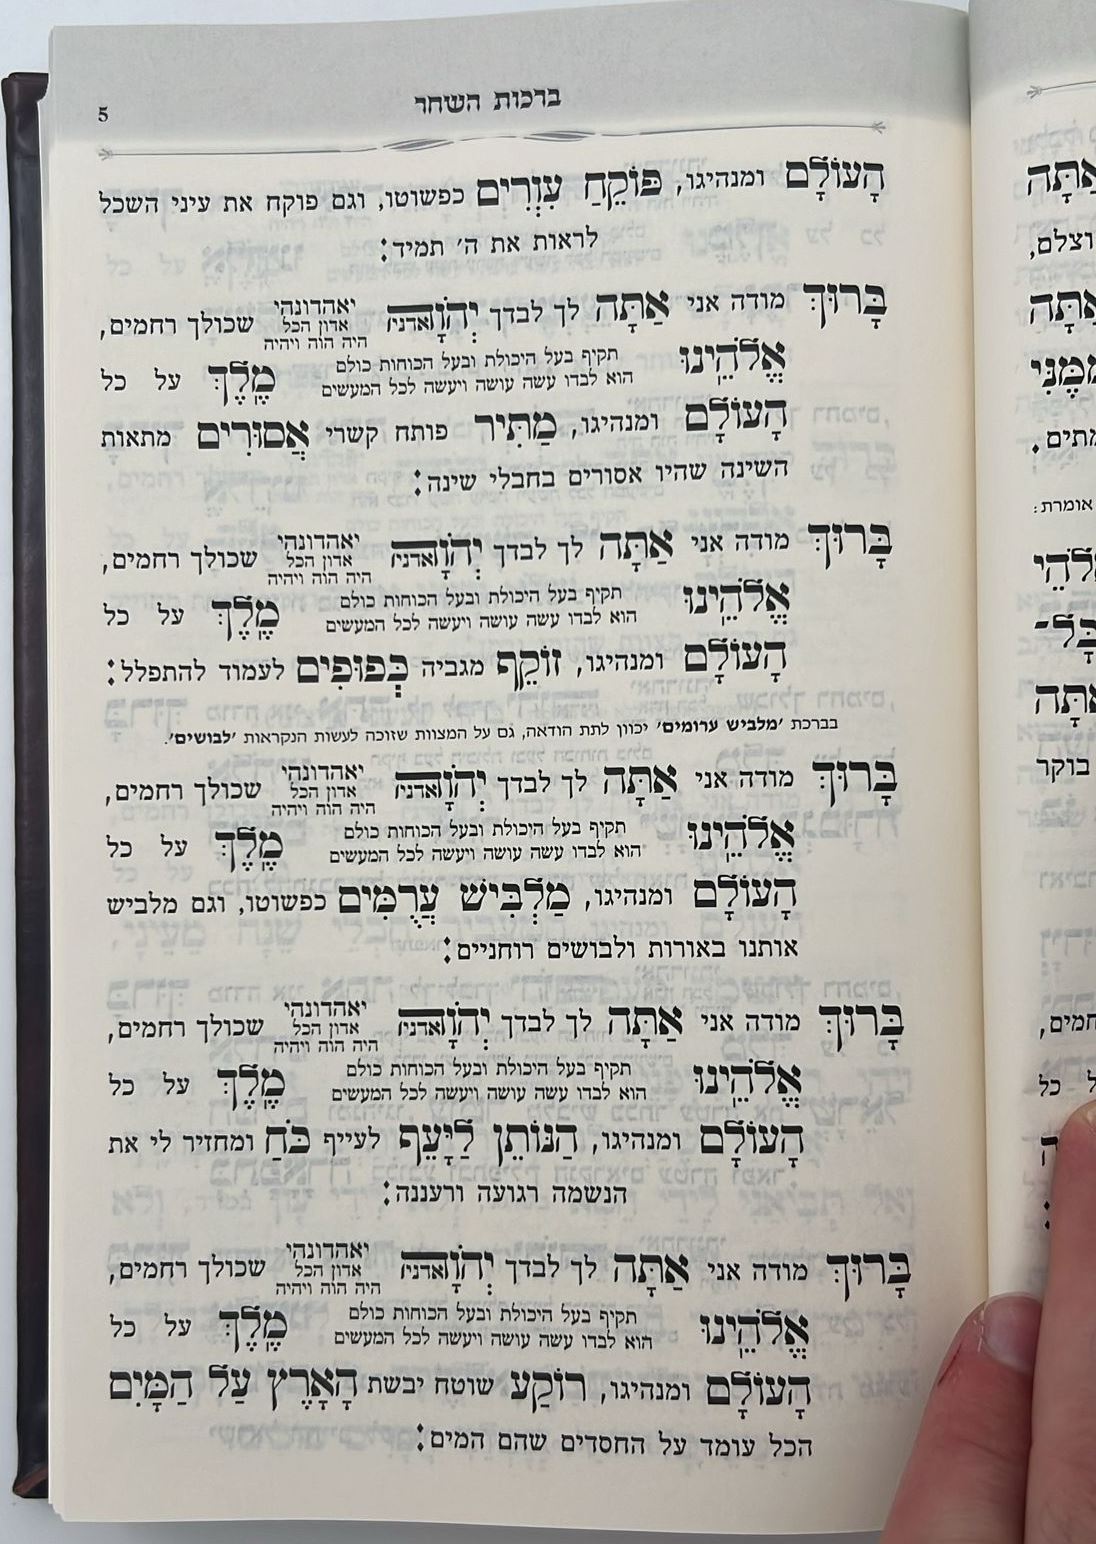 ברכות השחר
5
הָעוֹלָם ומנהיגו, פּוֹקֵחַ עִוְרִים כפשוטו, וגם פוקח את עיני השכל
לראות את ה׳ תמיד:
בָּרוּךְ מודה אני אַתָּה לך לבדך יְהֹוָה אדני יאהדונהי אדון הכל היה הוה ויהיה שכולך רחמים,
אֱלֹהֵינוּ תקיף בעל היכולת ובעל הכוחות כולם הוא לבדו עשה עושה ויעשה לכל המעשים מֶלֶךְ על כל
הָעוֹלָם ומנהיגו, מַתִּיר פותח קשרי אֲסוּרִים מתאות
השינה שהיו אסורים בחבלי שינה:
בָּרוּךְ מודה אני אַתָּה לך לבדך יְהֹוָה אדני יאהדונהי אדון הכל היה הוה ויהיה שכולך רחמים,
אֱלֹהֵינוּ תקיף בעל היכולת ובעל הכוחות כולם הוא לבדו עשה עושה ויעשה לכל המעשים מֶלֶךְ על כל
הָעוֹלָם ומנהיגו, זוֹקֵף מגביה כְּפוּפִים לעמוד להתפלל:
בברכת ׳מלביש ערומים׳ יכוון לתת הודאה, גם על המצוות שזוכה לעשות הנקראות ׳לבושים׳.
בָּרוּךְ מודה אני אַתָּה לך לבדך יְהֹוָה אדני יאהדונהי אדון הכל היה הוה ויהיה שכולך רחמים,
אֱלֹהֵינוּ תקיף בעל היכולת ובעל הכוחות כולם הוא לבדו עשה עושה ויעשה לכל המעשים מֶלֶךְ על כל
הָעוֹלָם ומנהיגו, מַלְבִּישׁ עֲרֻמִּים כפשוטו, וגם מלביש
אותנו באורות ולבושים רוחניים:
בָּרוּךְ מודה אני אַתָּה לך לבדך יְהֹוָה אדני יאהדונהי אדון הכל היה הוה ויהיה שכולך רחמים,
אֱלֹהֵינוּ תקיף בעל היכולת ובעל הכוחות כולם הוא לבדו עשה עושה ויעשה לכל המעשים מֶלֶךְ על כל
הָעוֹלָם ומנהיגו, הַנּוֹתֵן לַיָּעֵף לעייף כֹּחַ ומחזיר לי את
הנשמה רגועה ורעננה:
בָּרוּךְ מודה אני אַתָּה לך לבדך יְהֹוָה אדני יאהדונהי אדון הכל היה הוה ויהיה שכולך רחמים,
אֱלֹהֵינוּ תקיף בעל היכולת ובעל הכוחות כולם הוא לבדו עשה עושה ויעשה לכל המעשים מֶלֶךְ על כל
הָעוֹלָם ומנהיגו, רוֹקַע שוטח יבשת הָאָרֶץ עַל הַמָּיִם
הכל עומד על החסדים שהם המים:
וצלם,
אומרת:
בוקר